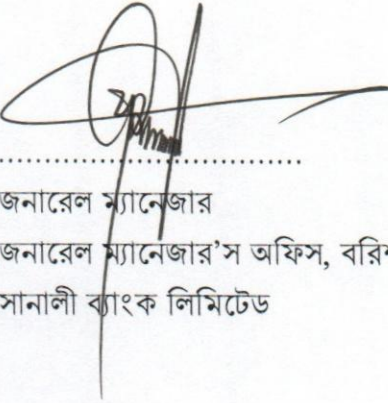 জনারেল ম্যানেজার
জনারেল ম্যানেজার'স অফিস, বরি
সানালী ব্যাংক লিমিটেড